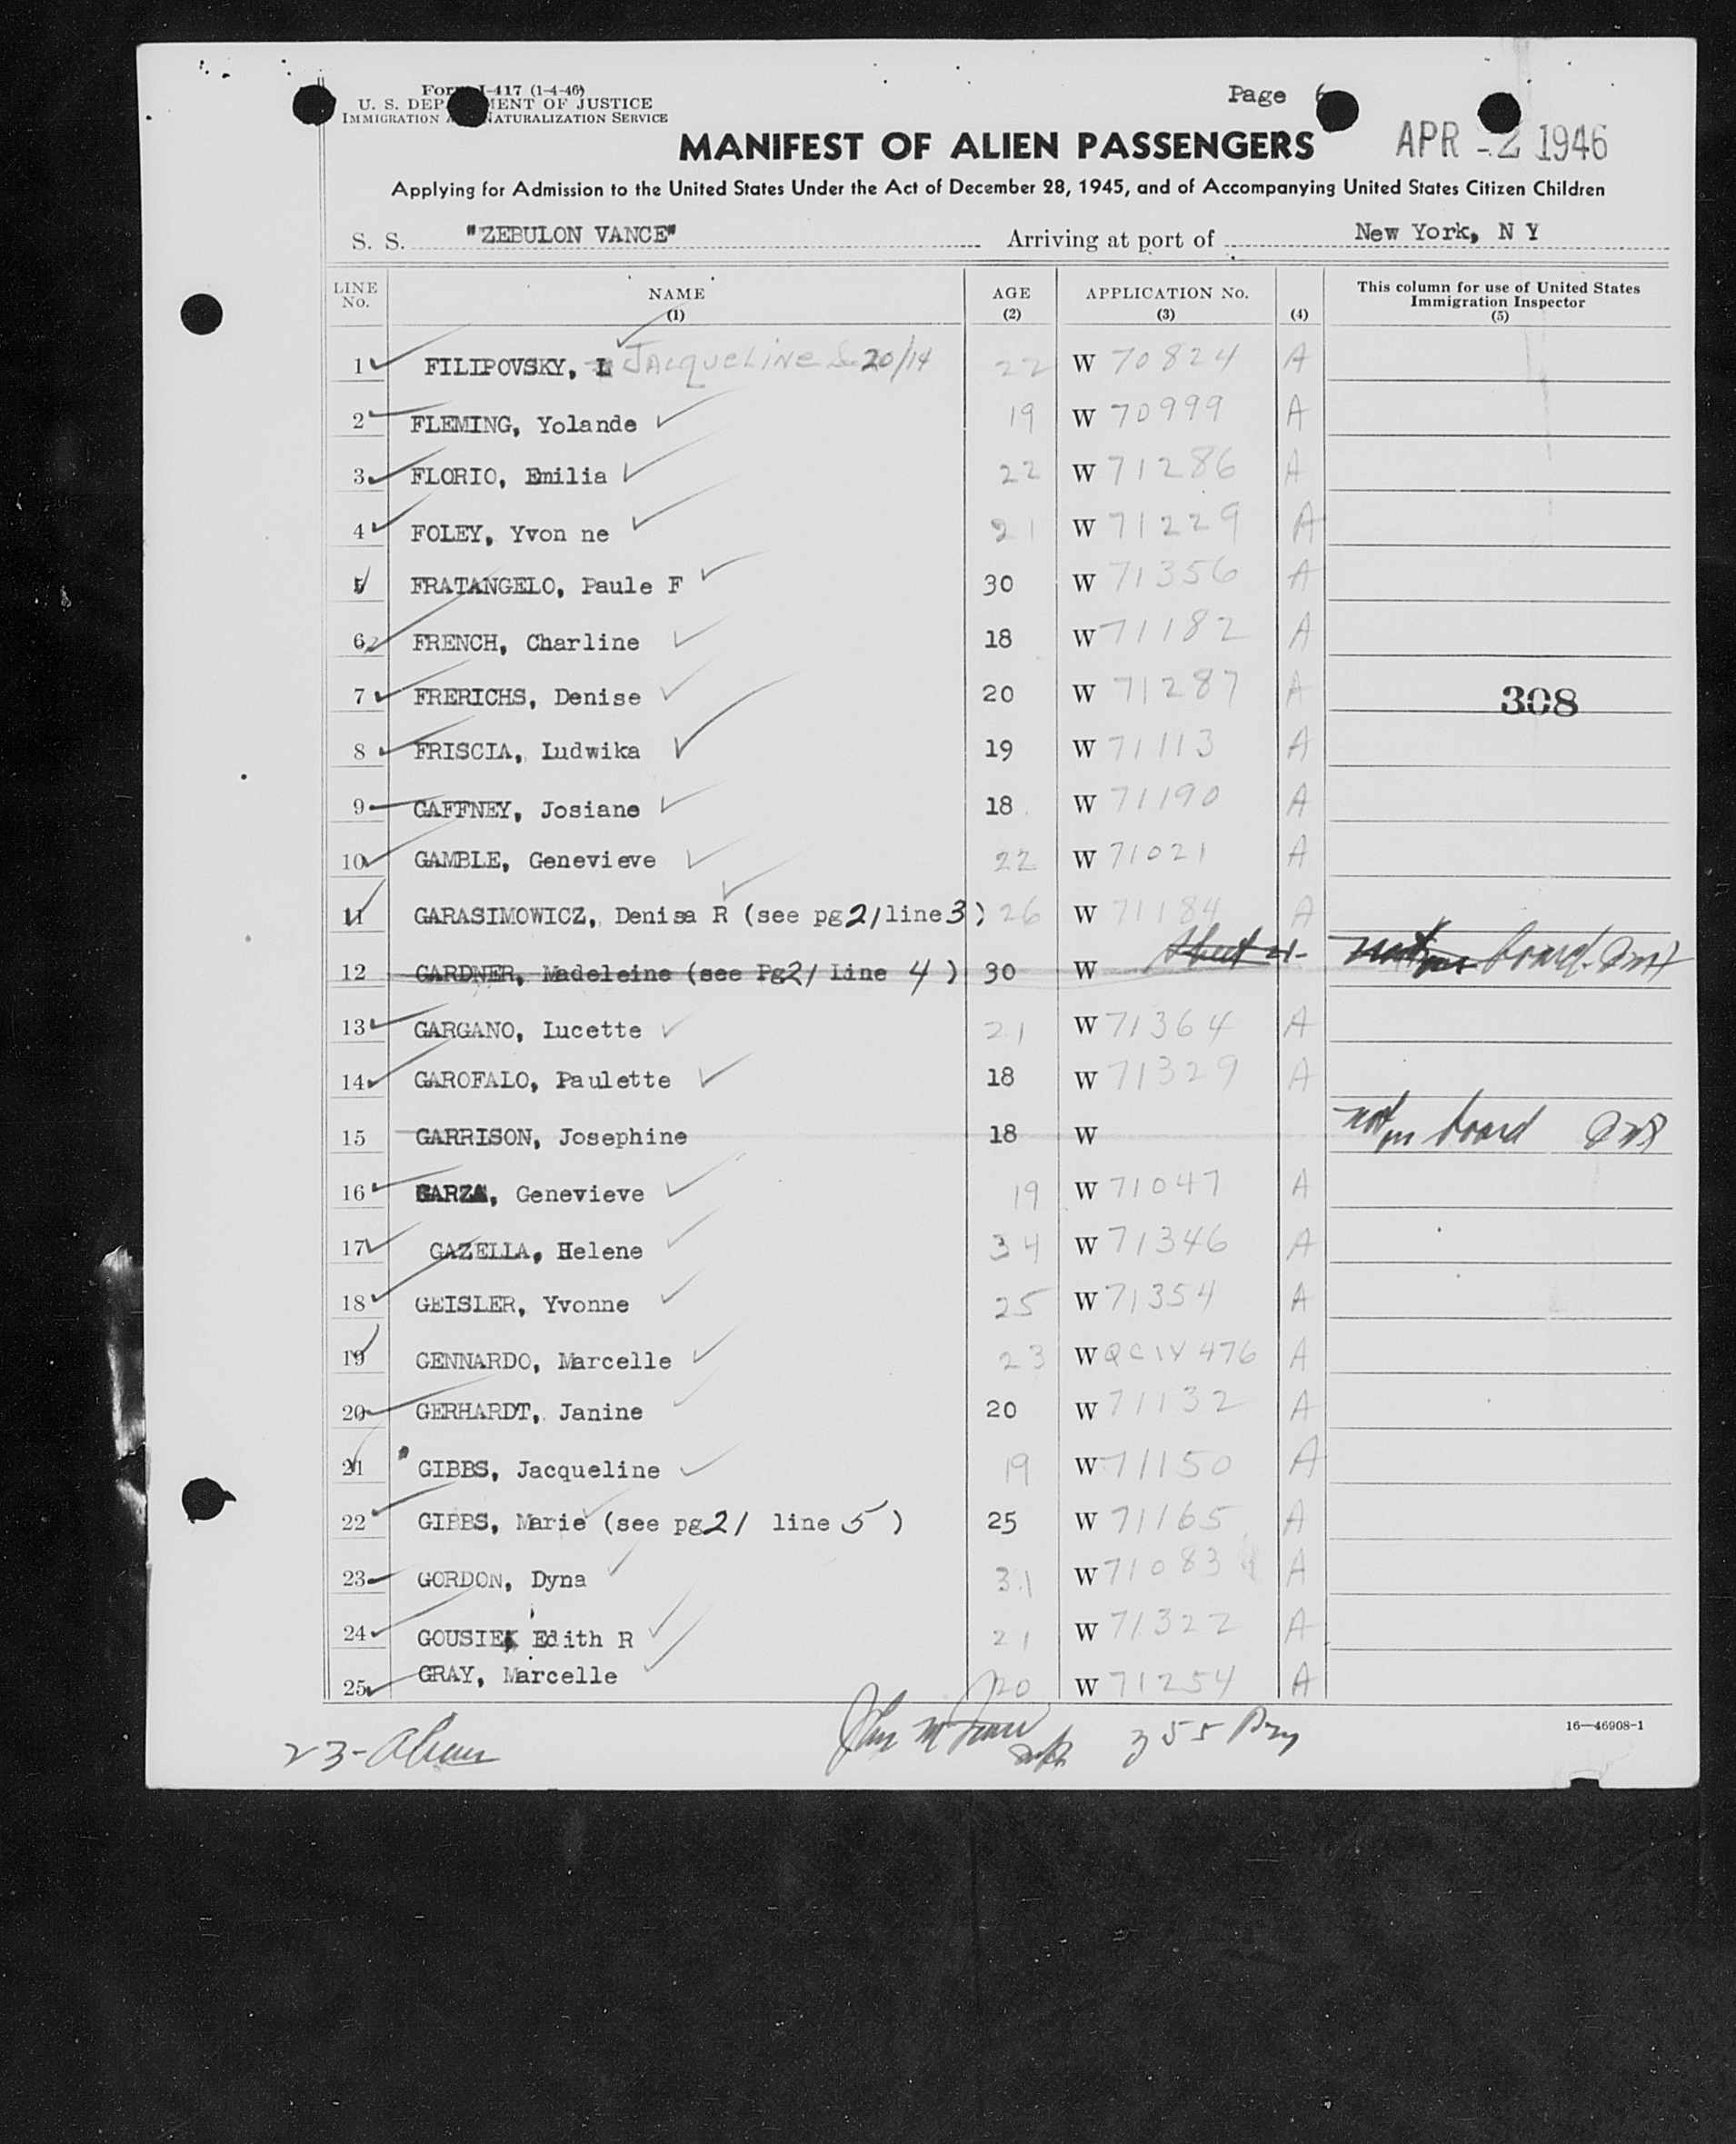 Form I-417 (1-4-46)
U. S. DEPARTMENT OF JUSTICE
IMMIGRATION AND NATURALIZATION SERVICE
Page 6
APR -2 1946
MANIFEST OF ALIEN PASSENGERS
Applying for Admission to the United States Under the Act of December 28, 1945, and of Accompanying United States Citizen Children
S. S. "ZEBULON VANCE" Arriving at port of New York, N Y
LINE No. NAME (1) AGE (2) APPLICATION No. (3) (4) This column for use of United States Immigration Inspector (5)
1 FILIPOVSKY, L Jacqueline 20/14 22 W 70824 A
2 FLEMING, Yolande 19 W 70999 A
3 FLORIO, Emilia 22 W 71286 A
4 FOLEY, Yvon ne 21 W 71229 A
5 FRATANGELO, Paule F 30 W 71356 A
6 FRENCH, Charline 18 W 71182 A
7 FRERICHS, Denise 20 W 71287 A 308
8 FRISCIA, Ludwika 19 W 71113 A
9 GAFFNEY, Josiane 18 W 71190 A
10 GAMBLE, Genevieve 22 W 71021 A
11 GARASIMOWICZ, Denisa R (see pg 21 line 3) 26 W 71184 A
12 GARDNER, Madeleine (see Pg 21 line 4) 30 W sheet 21- not on board.
13 GARGANO, Lucette 21 W 71364 A
14 GAROFALO, Paulette 18 W 71329 A
15 GARRISON, Josephine 18 W not on board
16 GARZA, Genevieve 19 W 71047 A
17 GAZELLA, Helene 34 W 71346 A
18 GEISLER, Yvonne 25 W 71354 A
19 GENNARDO, Marcelle 23 W 476 A
20 GERHARDT, Janine 20 W 71132 A
21 GIBBS, Jacqueline 19 W 71150 A
22 GIBBS, Marie (see pg 21 line 5) 25 W 71165 A
23 GORDON, Dyna 31 W 71083 A
24 GOUSIE, Edith R 21 W 71322 A
25 GRAY, Marcelle 20 W 71254 A
23-
16—46908-1